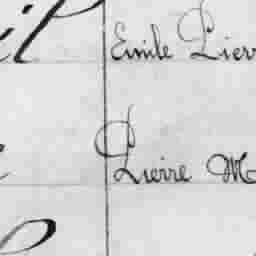 il Emile Pierr
Pierre M